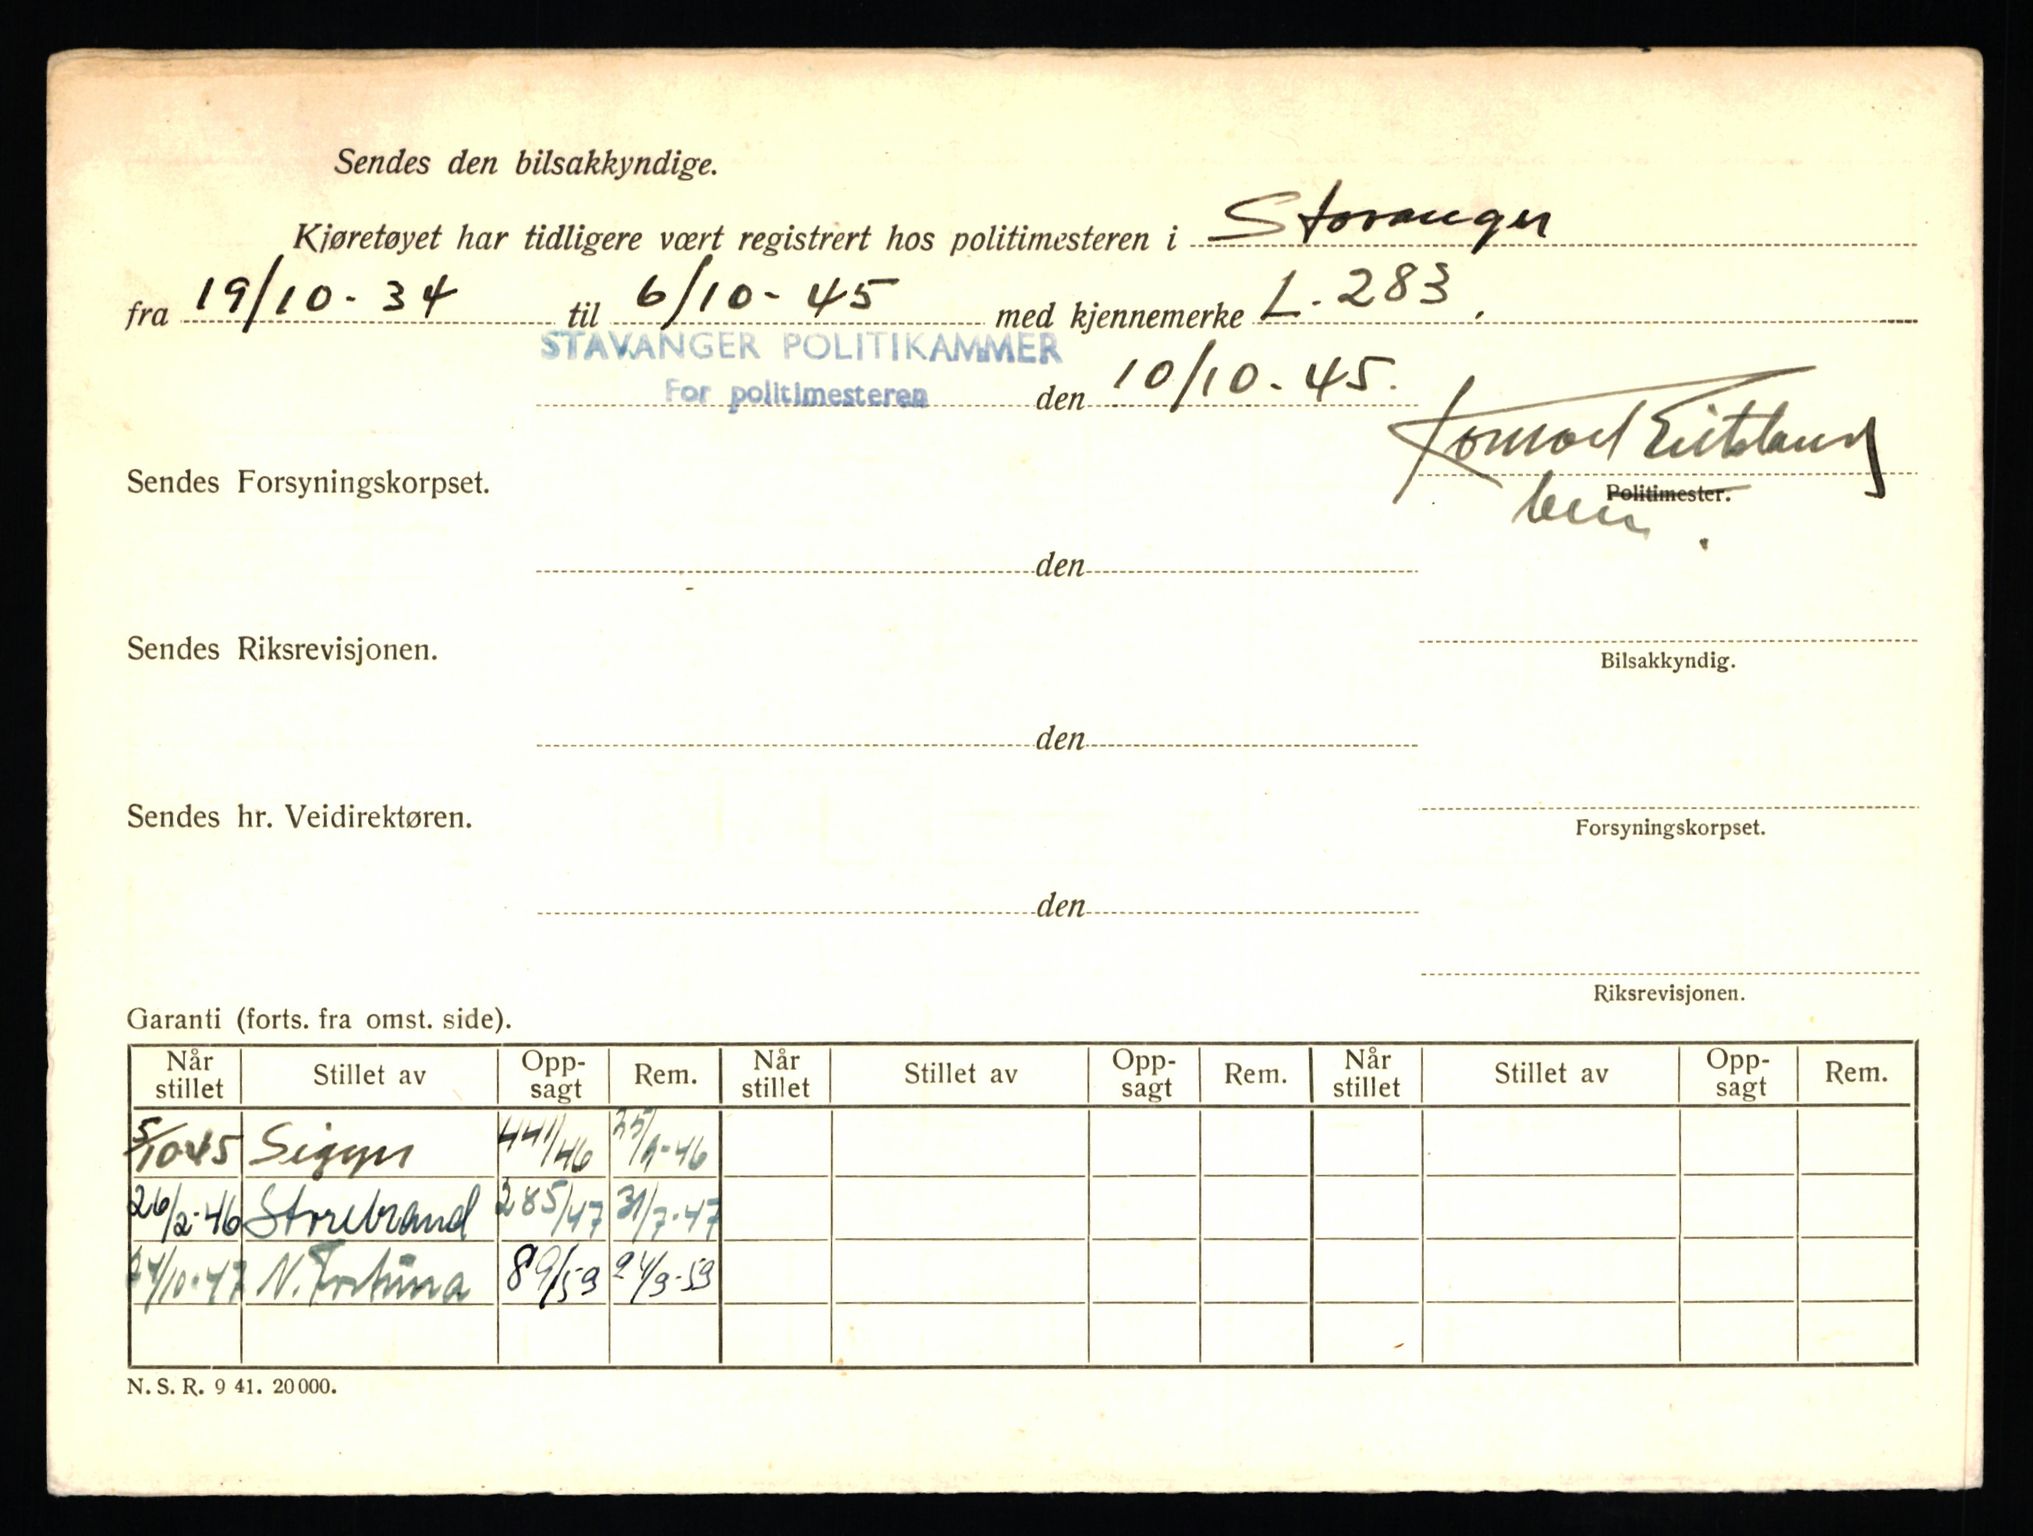 Sendes den bilsakkyndige.
Kjøretøyet har tidligere vært registrert hos politimesteren i Stavanger
fra 19/10-34 til 6/10-45 med kjennemerke L-283.
STAVANGER POLITIKAMMER
For politimesteren den 10/10-45.
Sendes Forsyningskorpset.
Politimester.
den
Sendes Riksrevisjonen.
Bilsakkyndig.
den
Sendes hr. Veidirektøren.
Forsyningskorpset.
den
Riksrevisjonen.
Garanti (forts. fra omst. side).
Når stillet Stillet av Opp-sagt Rem. Når stillet Stillet av Opp-sagt Rem. Når stillet Stillet av Opp-sagt Rem.
5/10-45 Sigyn 441/46
26/2-46 Storebrand 285/47 31/7-47
24/10-47 N. Fortuna 89/59 24/9-59
N. S. R. 9 41. 20 000.